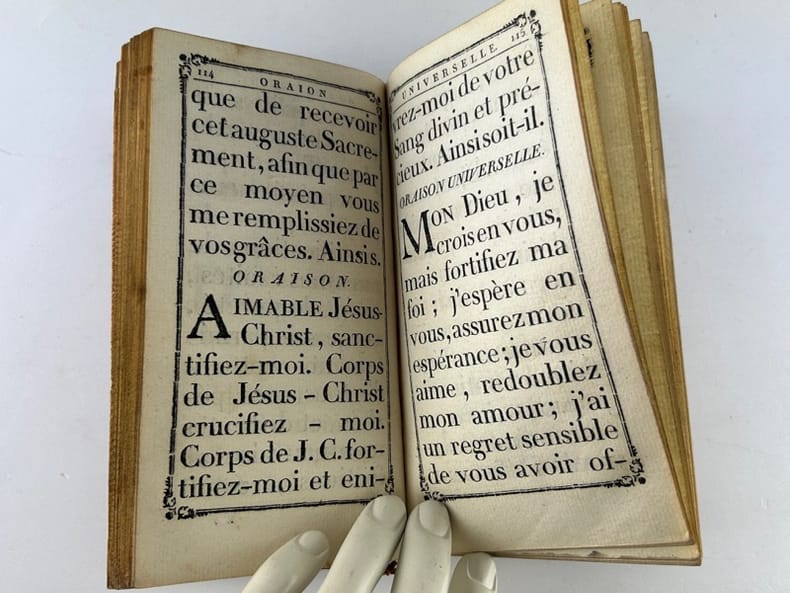 114
ORAION
que de recevoir
cet auguste Sacre-
ment, afin que par
ce moyen vous
me remplissiez de
vos grâces. Ainsi s.
ORAISON.
AIMABLE Jésus-
Christ, sanc-
tifiez-moi. Corps
de Jésus-Christ
crucifiez-moi.
Corps de J. C. for-
tifiez-moi et eni-
UNIVERSELLE. 115
vrez-moi de votre
Sang divin et pré-
cieux. Ainsi soit-il.
ORAISON UNIVERSELLE.
MON Dieu, je
crois en vous,
mais fortifiez ma
foi; j'espère en
vous, assurez mon
espérance; je vous
aime, redoublez
mon amour; j'ai
un regret sensible
de vous avoir of-